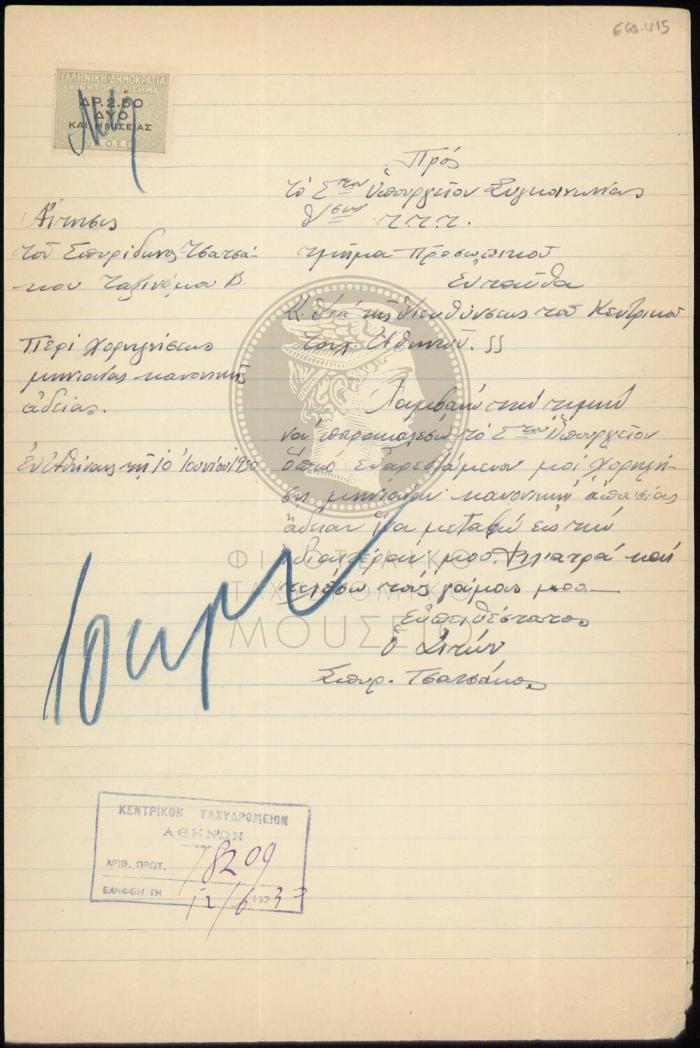 668.415
ΕΛΛΗΝΙΚΗ ΔΗΜΟΚΡΑΤΙΑ
ΚΙΝΗΤΟΝ ΕΠΙΣΗΜΑ
ΔΡ. 2.50
ΔΥΟ
ΚΑΙ ΗΜΙΣΕΙΑΣ
Πρός
τὸ Σ τον Ὑπουργεῖον Συγκοινωνίας
Τ.Τ.Τ.
Τμῆμα Προσωπικοῦ
Ἐνταῦθα
διὰ τῆς Διευθύνσεως τοῦ Κεντρικοῦ
Ταχ. Ἀθηνῶν.
Αἴτησις
τοῦ Σπυρίδωνος Τσατσά-
κου Ταξινόμου Β
Περὶ χορηγήσεως
μηνιαίας κανονικῆς
ἀδείας.
Ἐν Ἀθήναις τῇ 10 Ἰουνίου 1930
Λαμβάνω τὴν τιμὴν
νὰ παρακαλέσω τὸ Σ τον Ὑπουργεῖον
ὅπως εὐαρεστούμενον μοὶ χορηγή-
σῃ μηνιαίαν κανονικὴν ἀπουσίας
ἄδειαν ἵνα μεταβῶ εἰς τὴν
ἰδιαιτέραν μου Φιλιατρά καὶ
τελέσω τοὺς γάμους μου
Εὐπειθέστατος
ὁ Αἰτῶν
Σπυρ. Τσατσάκος
ΦΙΛΟΤΕΛΙΚΟ
ΤΑΧΥΔΡΟΜΙΚΟ
ΜΟΥΣΕΙΟ
ΚΕΝΤΡΙΚΟΝ ΤΑΧΥΔΡΟΜΕΙΟΝ
ΑΘΗΝΩΝ
ΑΡΙΘ. ΠΡΩΤ. 78209
ΕΛΗΦΘΗ ΤΗ 12/6 193